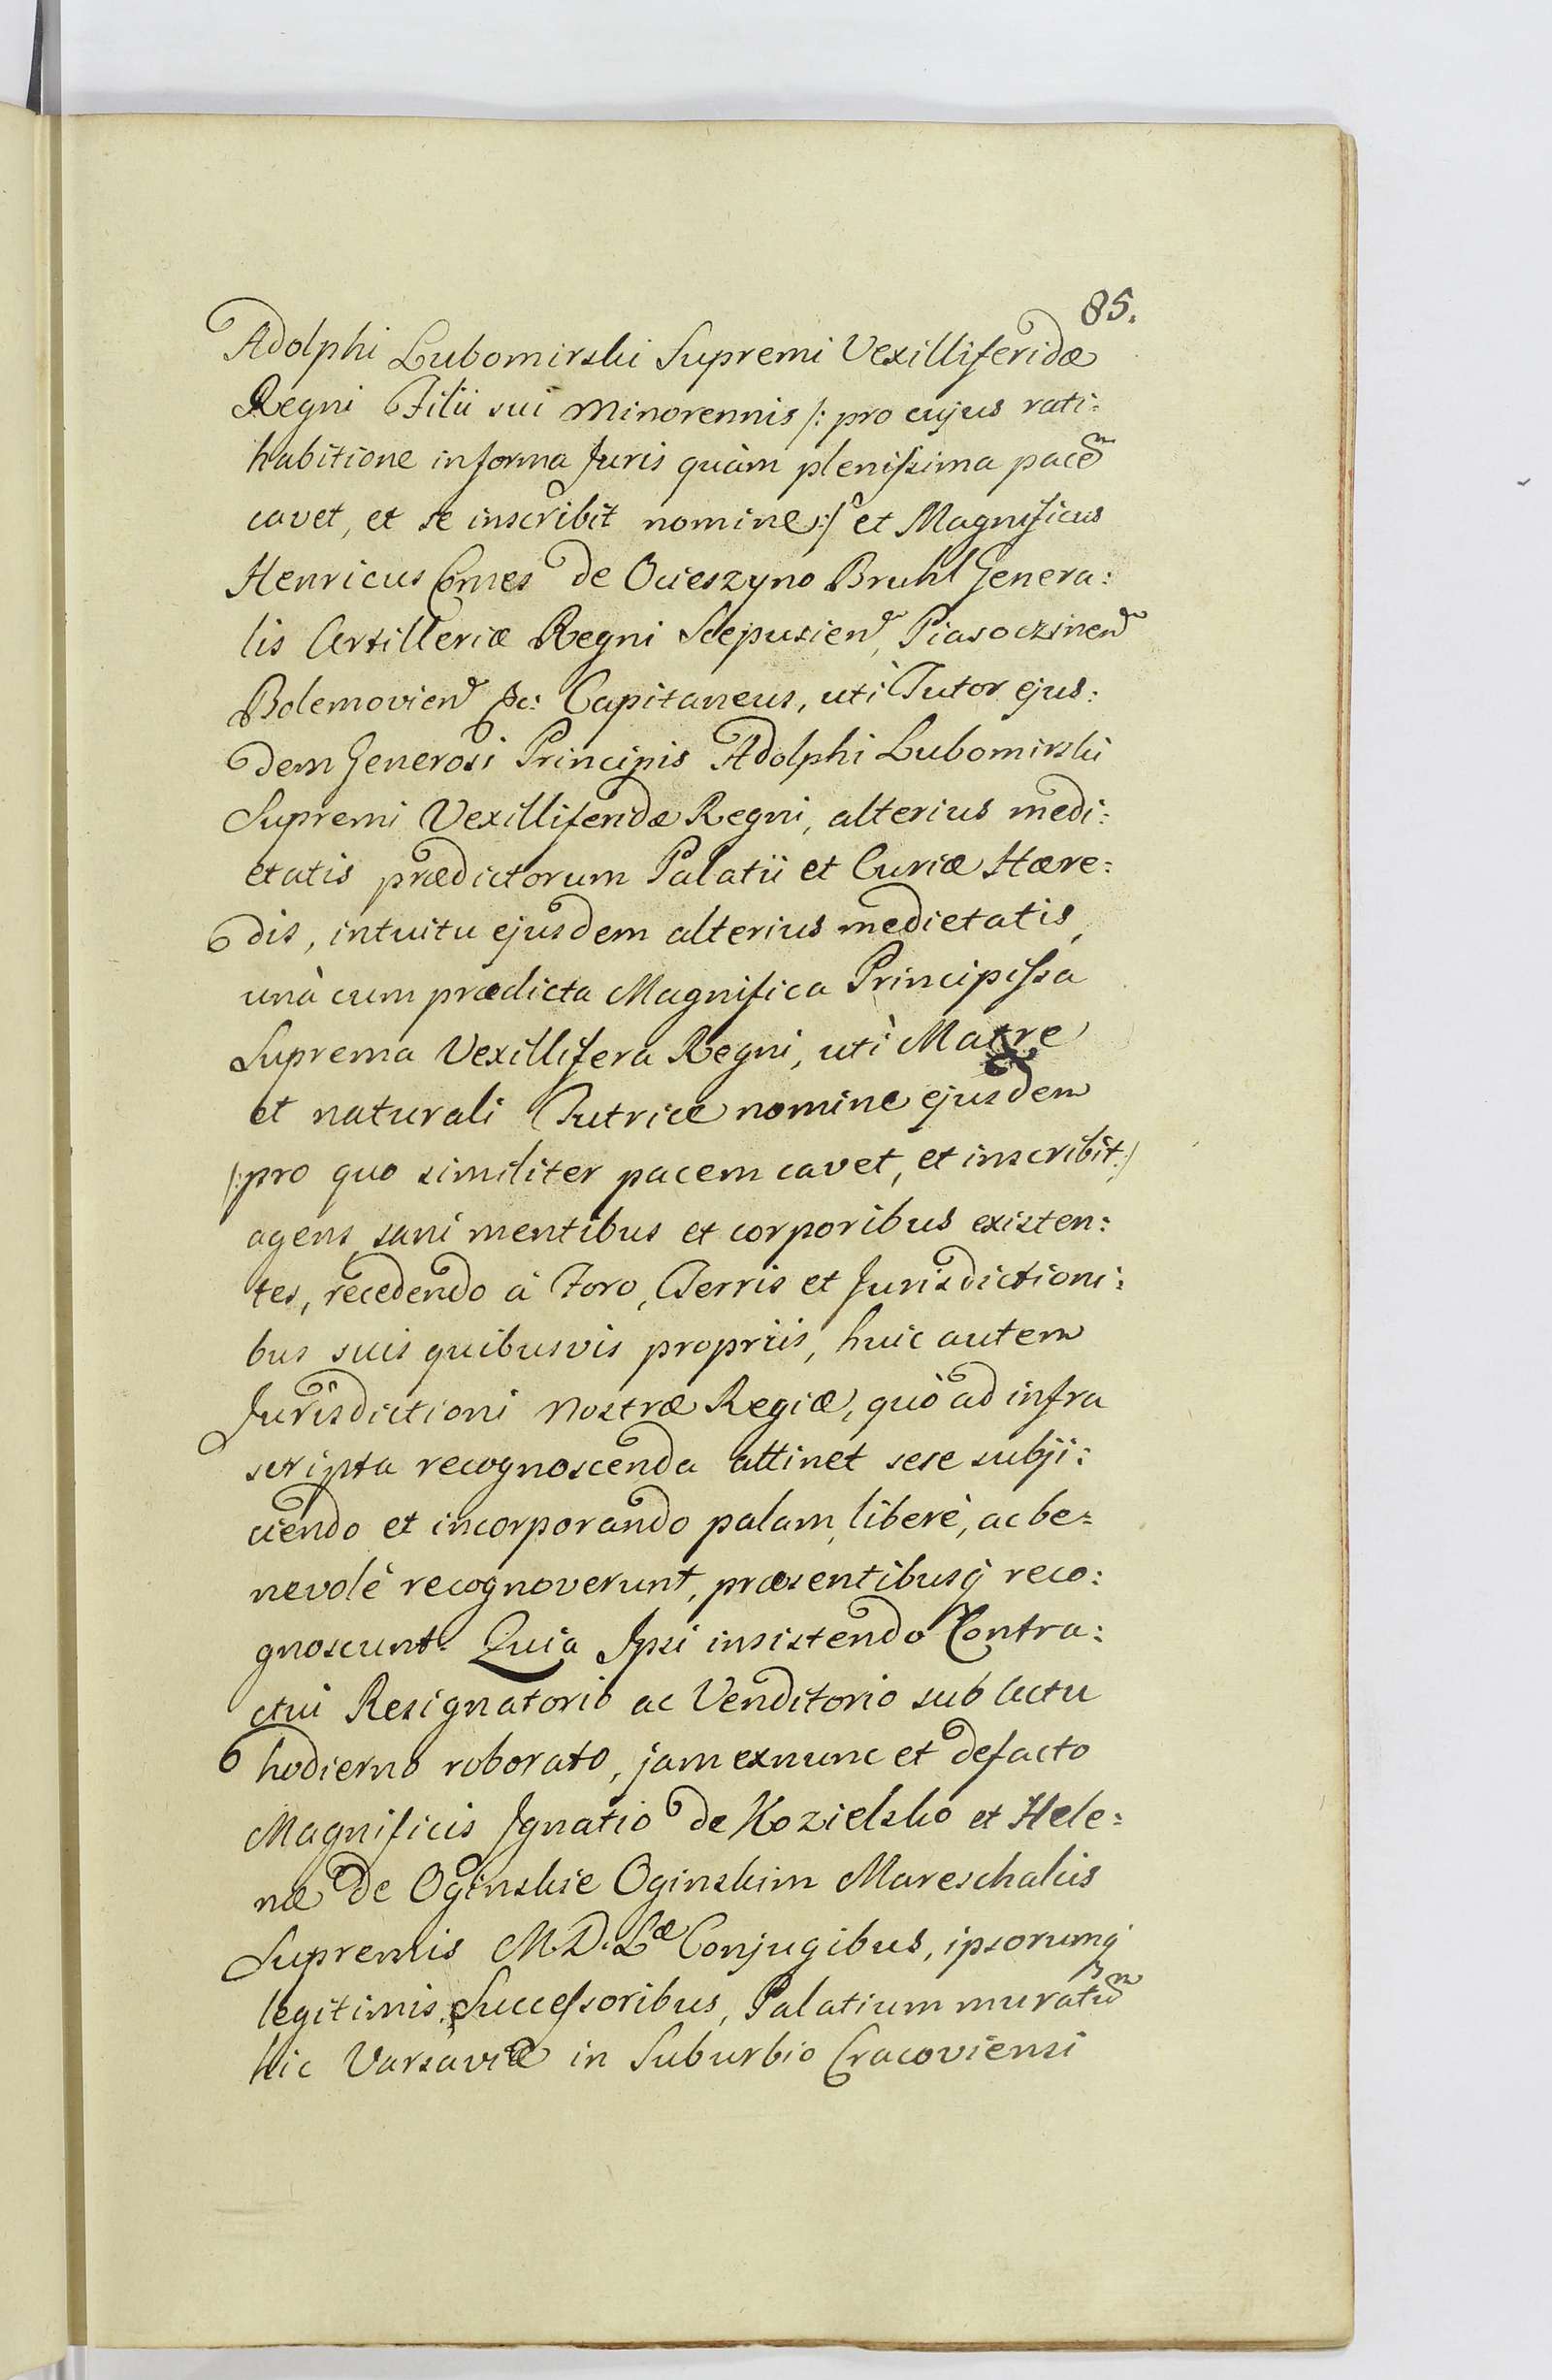 85.
Adolphi Lubomirski Supremi Vexilliferidæ
Regni Filii sui minorennis /: pro cujus rati:
habitione in forma Juris quàm plenissima pacem̃
cavet, et se inscribit nomine :/ et Magnificus
Henricus Comes de Ocieszyno Bruhl Genera:
lis Artilleriæ Regni Scepusien, Piasoczinen
Bolemovien &c: Capitaneus, uti Tutor ejus:
dem Generosi Principis Adolphi Lubomirski
Supremi Vexilliferidæ Regni, alterius medi:
etatis prædictorum Palatii et Curiæ Hære:
dis, intuitu ejusdem alterius medietatis,
unà cum prædicta Magnifica Principissa
Suprema Vexillifera Regni, uti Matre
et naturali Tutrice nomine ejusdem
/: pro quo similiter pacem cavet, et inscribit :/
agens, sani mentibus et corporibus existen:
tes, recedendo à Foro, Terris et Jurisdictioni:
bus suis quibusvis propriis, huic autem
Jurisdictioni nostræ Regiæ, quò ad infra
scripta recognoscenda attinet sese subji:
ciendo et incorporando palam, liberè, ac be=
nevolè recognoverunt, præsentibusq́ reco:
gnoscunt. Quia Ipsi insistendo Contra:
ctui Resignatorio ac Venditorio sub Actu
hodierno roborato, jam exnunc et defacto
Magnificis Ignatio de Kozielsko et Hele:
næ de Oginskie Oginskim Mareschalcis
Supremis M.D.Læ Conjugibus, ipsorumq́
legitimis Successoribus, Palatium muratũ
hic Varsaviæ in Suburbio Cracoviensi